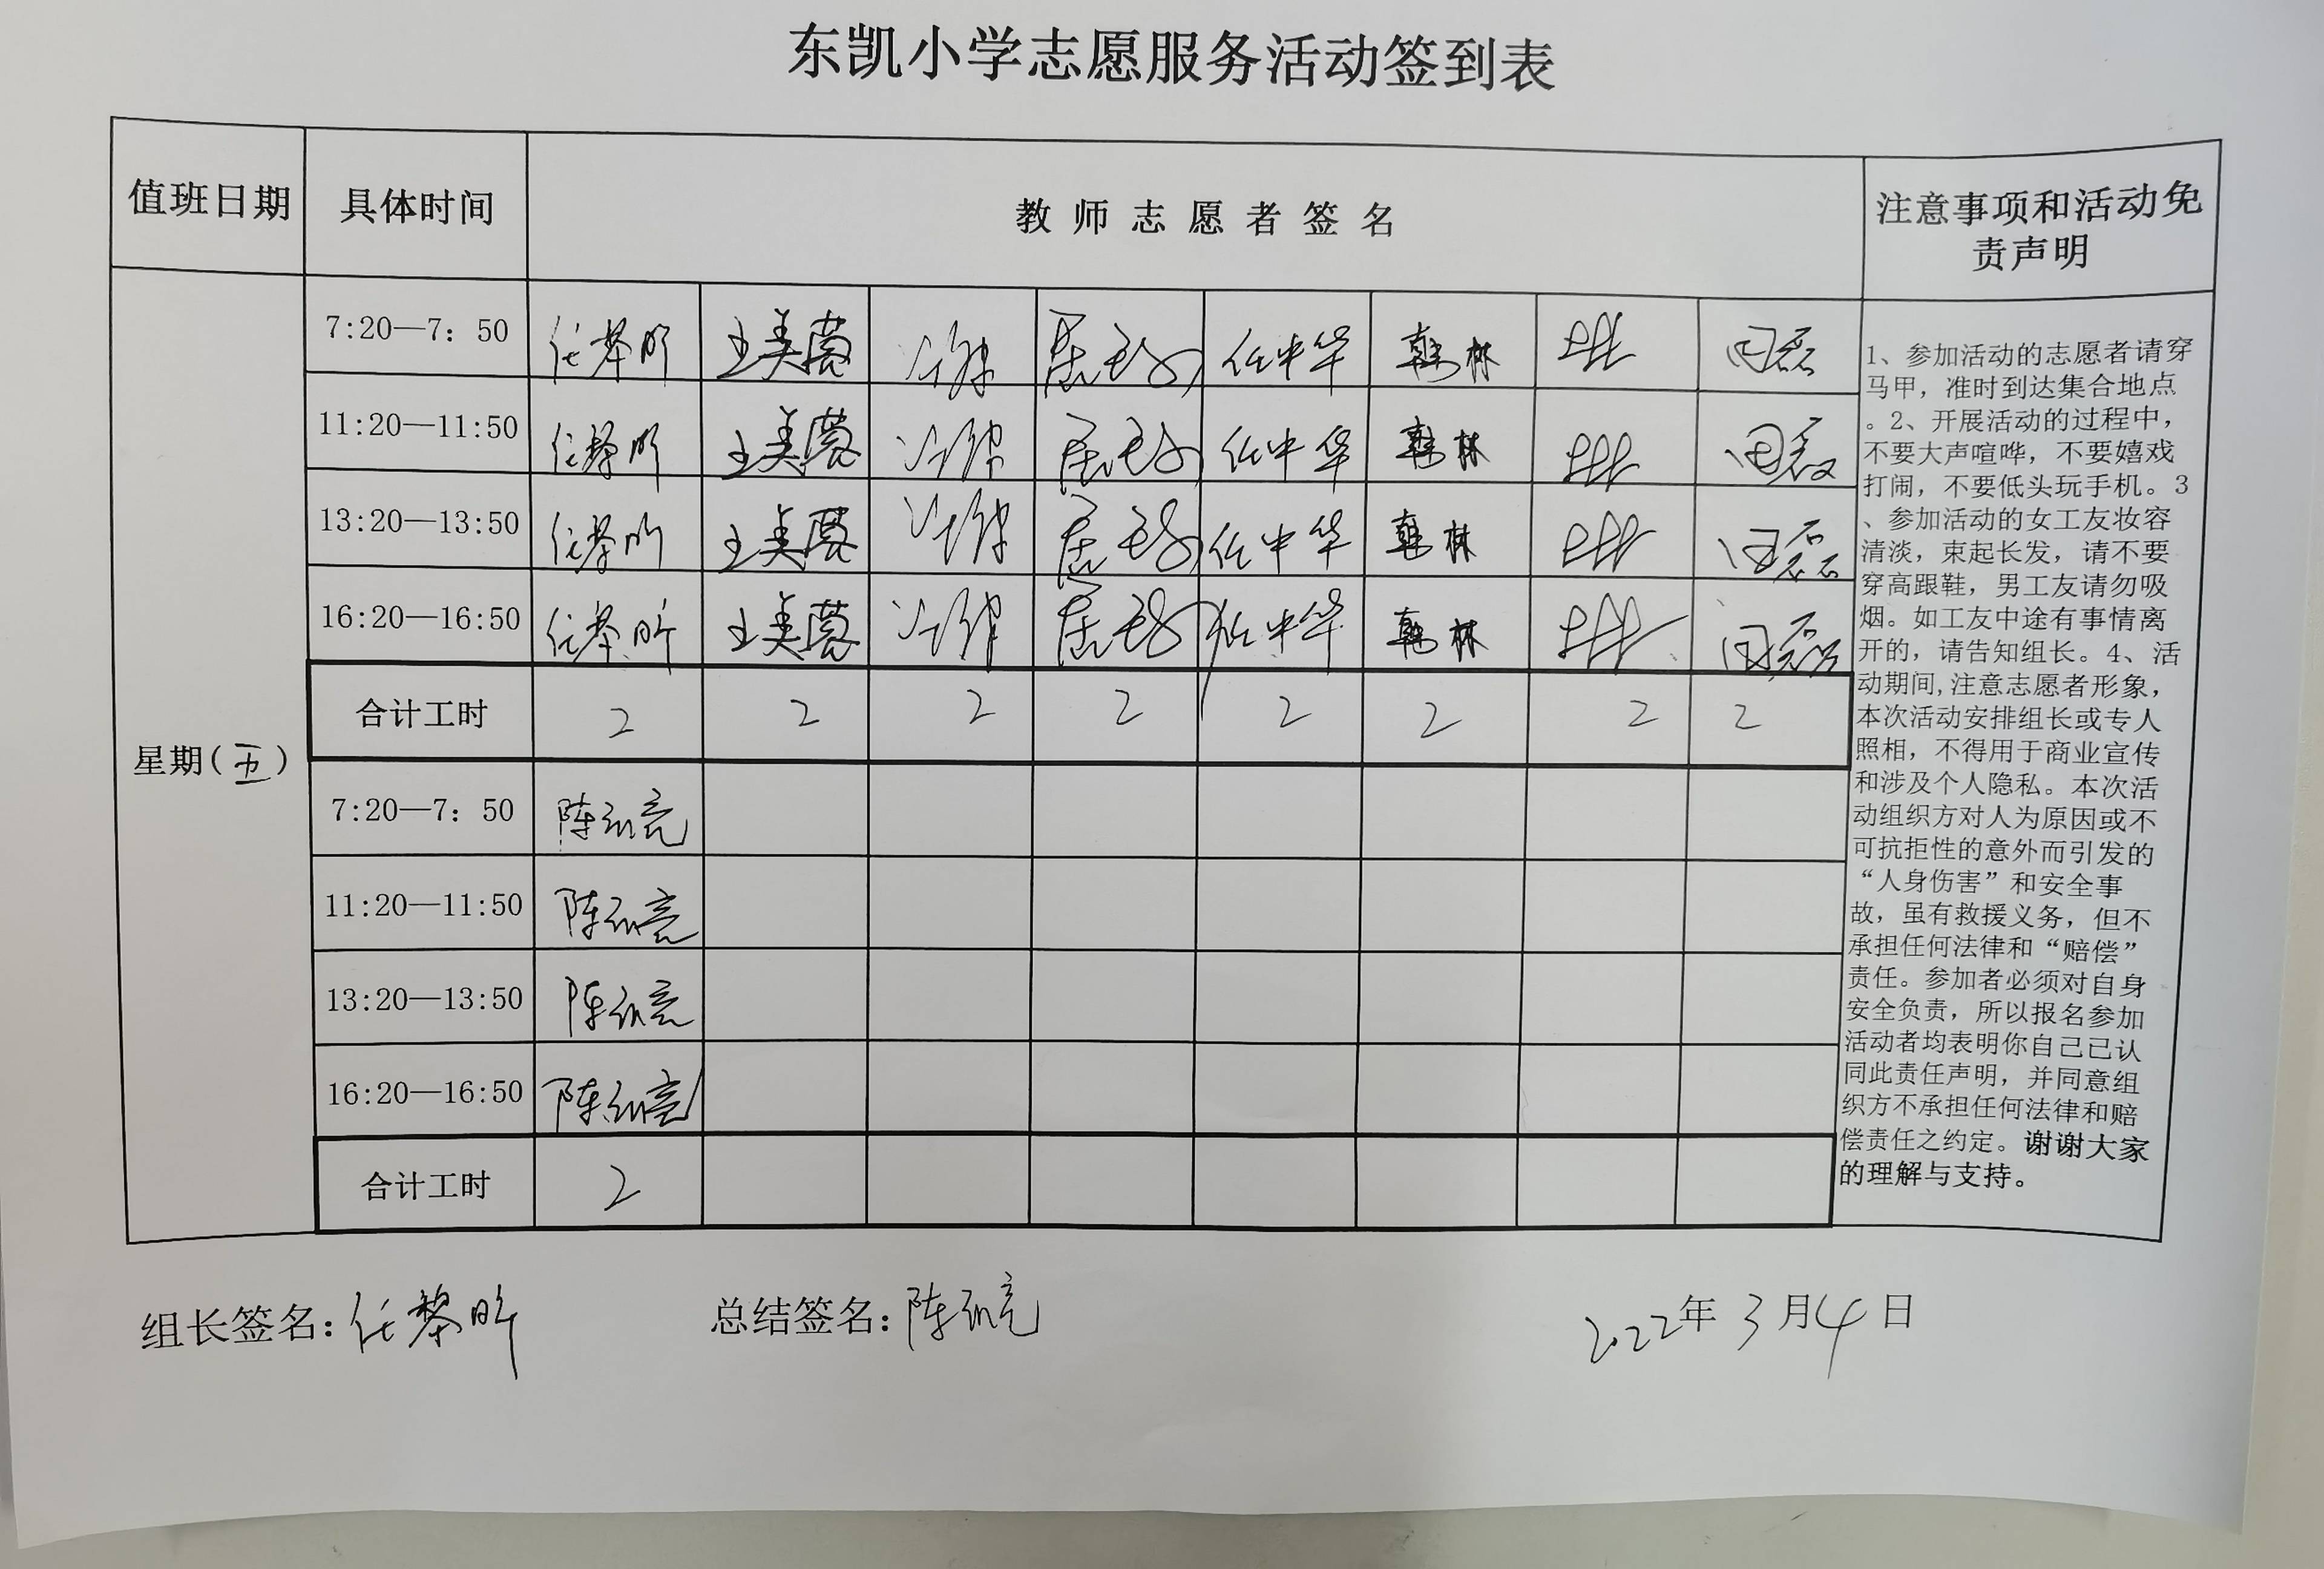 东凯小学志愿服务活动签到表
值班日期 具体时间 教师志愿者签名 注意事项和活动免
责声明
7:20—7：50 任黎昕 王美茵 任中华 韩林 田磊
11:20—11:50 任黎昕 王美茵 任中华 韩林 田磊
13:20—13:50 任黎昕 王美茵 任中华 韩林 田磊
16:20—16:50 任黎昕 王美茵 任中华 韩林 田磊
合计工时 2 2 2 2 2 2 2 2
星期(五)
7:20—7：50 陈亮
11:20—11:50 陈亮
13:20—13:50 陈亮
16:20—16:50 陈亮
合计工时 2
1、参加活动的志愿者请穿
马甲，准时到达集合地点
。2、开展活动的过程中，
不要大声喧哗，不要嬉戏
打闹，不要低头玩手机。3
、参加活动的女工友妆容
清淡，束起长发，请不要
穿高跟鞋，男工友请勿吸
烟。如工友中途有事情离
开的，请告知组长。4、活
动期间,注意志愿者形象，
本次活动安排组长或专人
照相，不得用于商业宣传
和涉及个人隐私。本次活
动组织方对人为原因或不
可抗拒性的意外而引发的
“人身伤害”和安全事
故，虽有救援义务，但不
承担任何法律和“赔偿”
责任。参加者必须对自身
安全负责，所以报名参加
活动者均表明你自己已认
同此责任声明，并同意组
织方不承担任何法律和赔
偿责任之约定。谢谢大家
的理解与支持。
组长签名：任黎昕 总结签名：陈亮 2022年3月4日